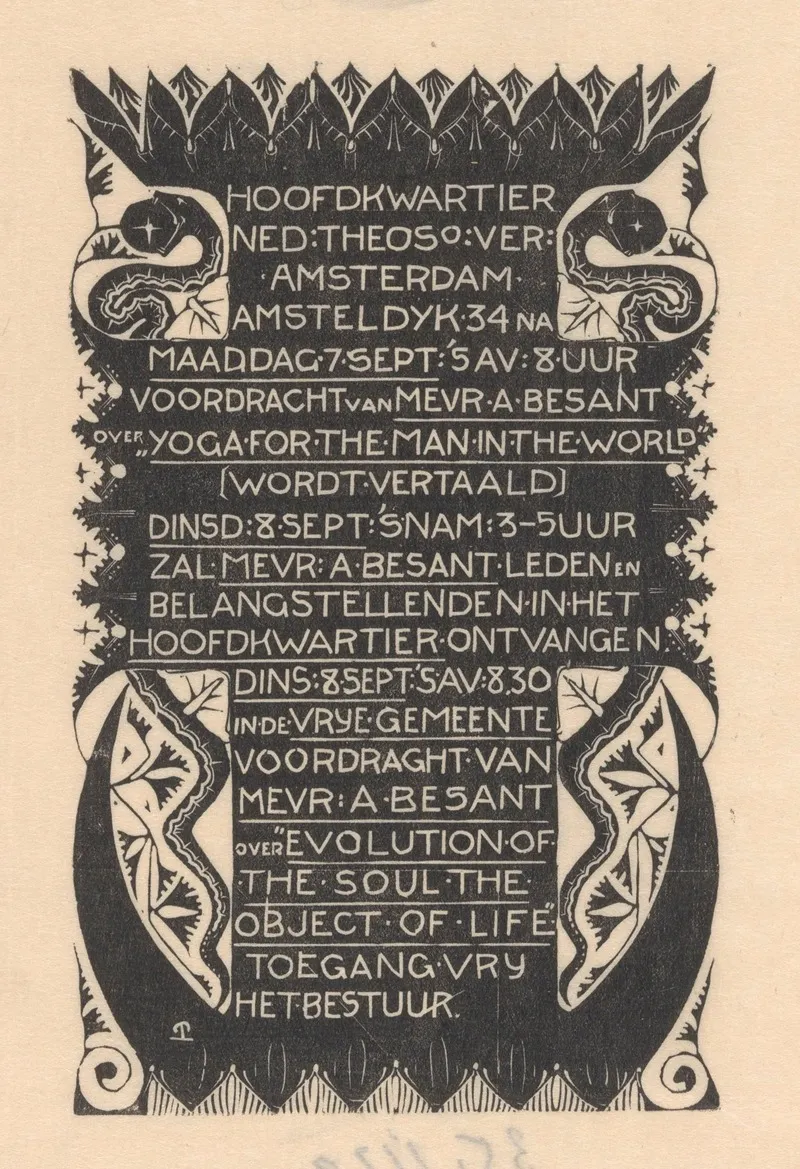 HOOFDKWARTIER
NED:THEOSO:VER:
·AMSTERDAM·
AMSTELDYK·34 NA
MAADDAG·7·SEPT:'S AV:8·UUR
VOORDRACHT VAN MEVR·A·BESANT
OVER „YOGA·FOR·THE·MAN·IN·THE·WORLD"
[WORDT·VERTAALD]
DINSD:8·SEPT:'SNAM:3-5UUR
ZAL·MEVR:A·BESANT·LEDEN EN
BELANGSTELLENDEN·IN·HET
HOOFDKWARTIER·ONTVANGEN.
DINS:8SEPT:'SAV:8.30
IN·DE·VRYE·GEMEENTE
VOORDRAGHT·VAN
MEVR:A·BESANT
OVER "EVOLUTION·OF·
·THE·SOUL·THE·
OBJECT·OF·LIFE"
TOEGANG·VRY
HET·BESTUUR.